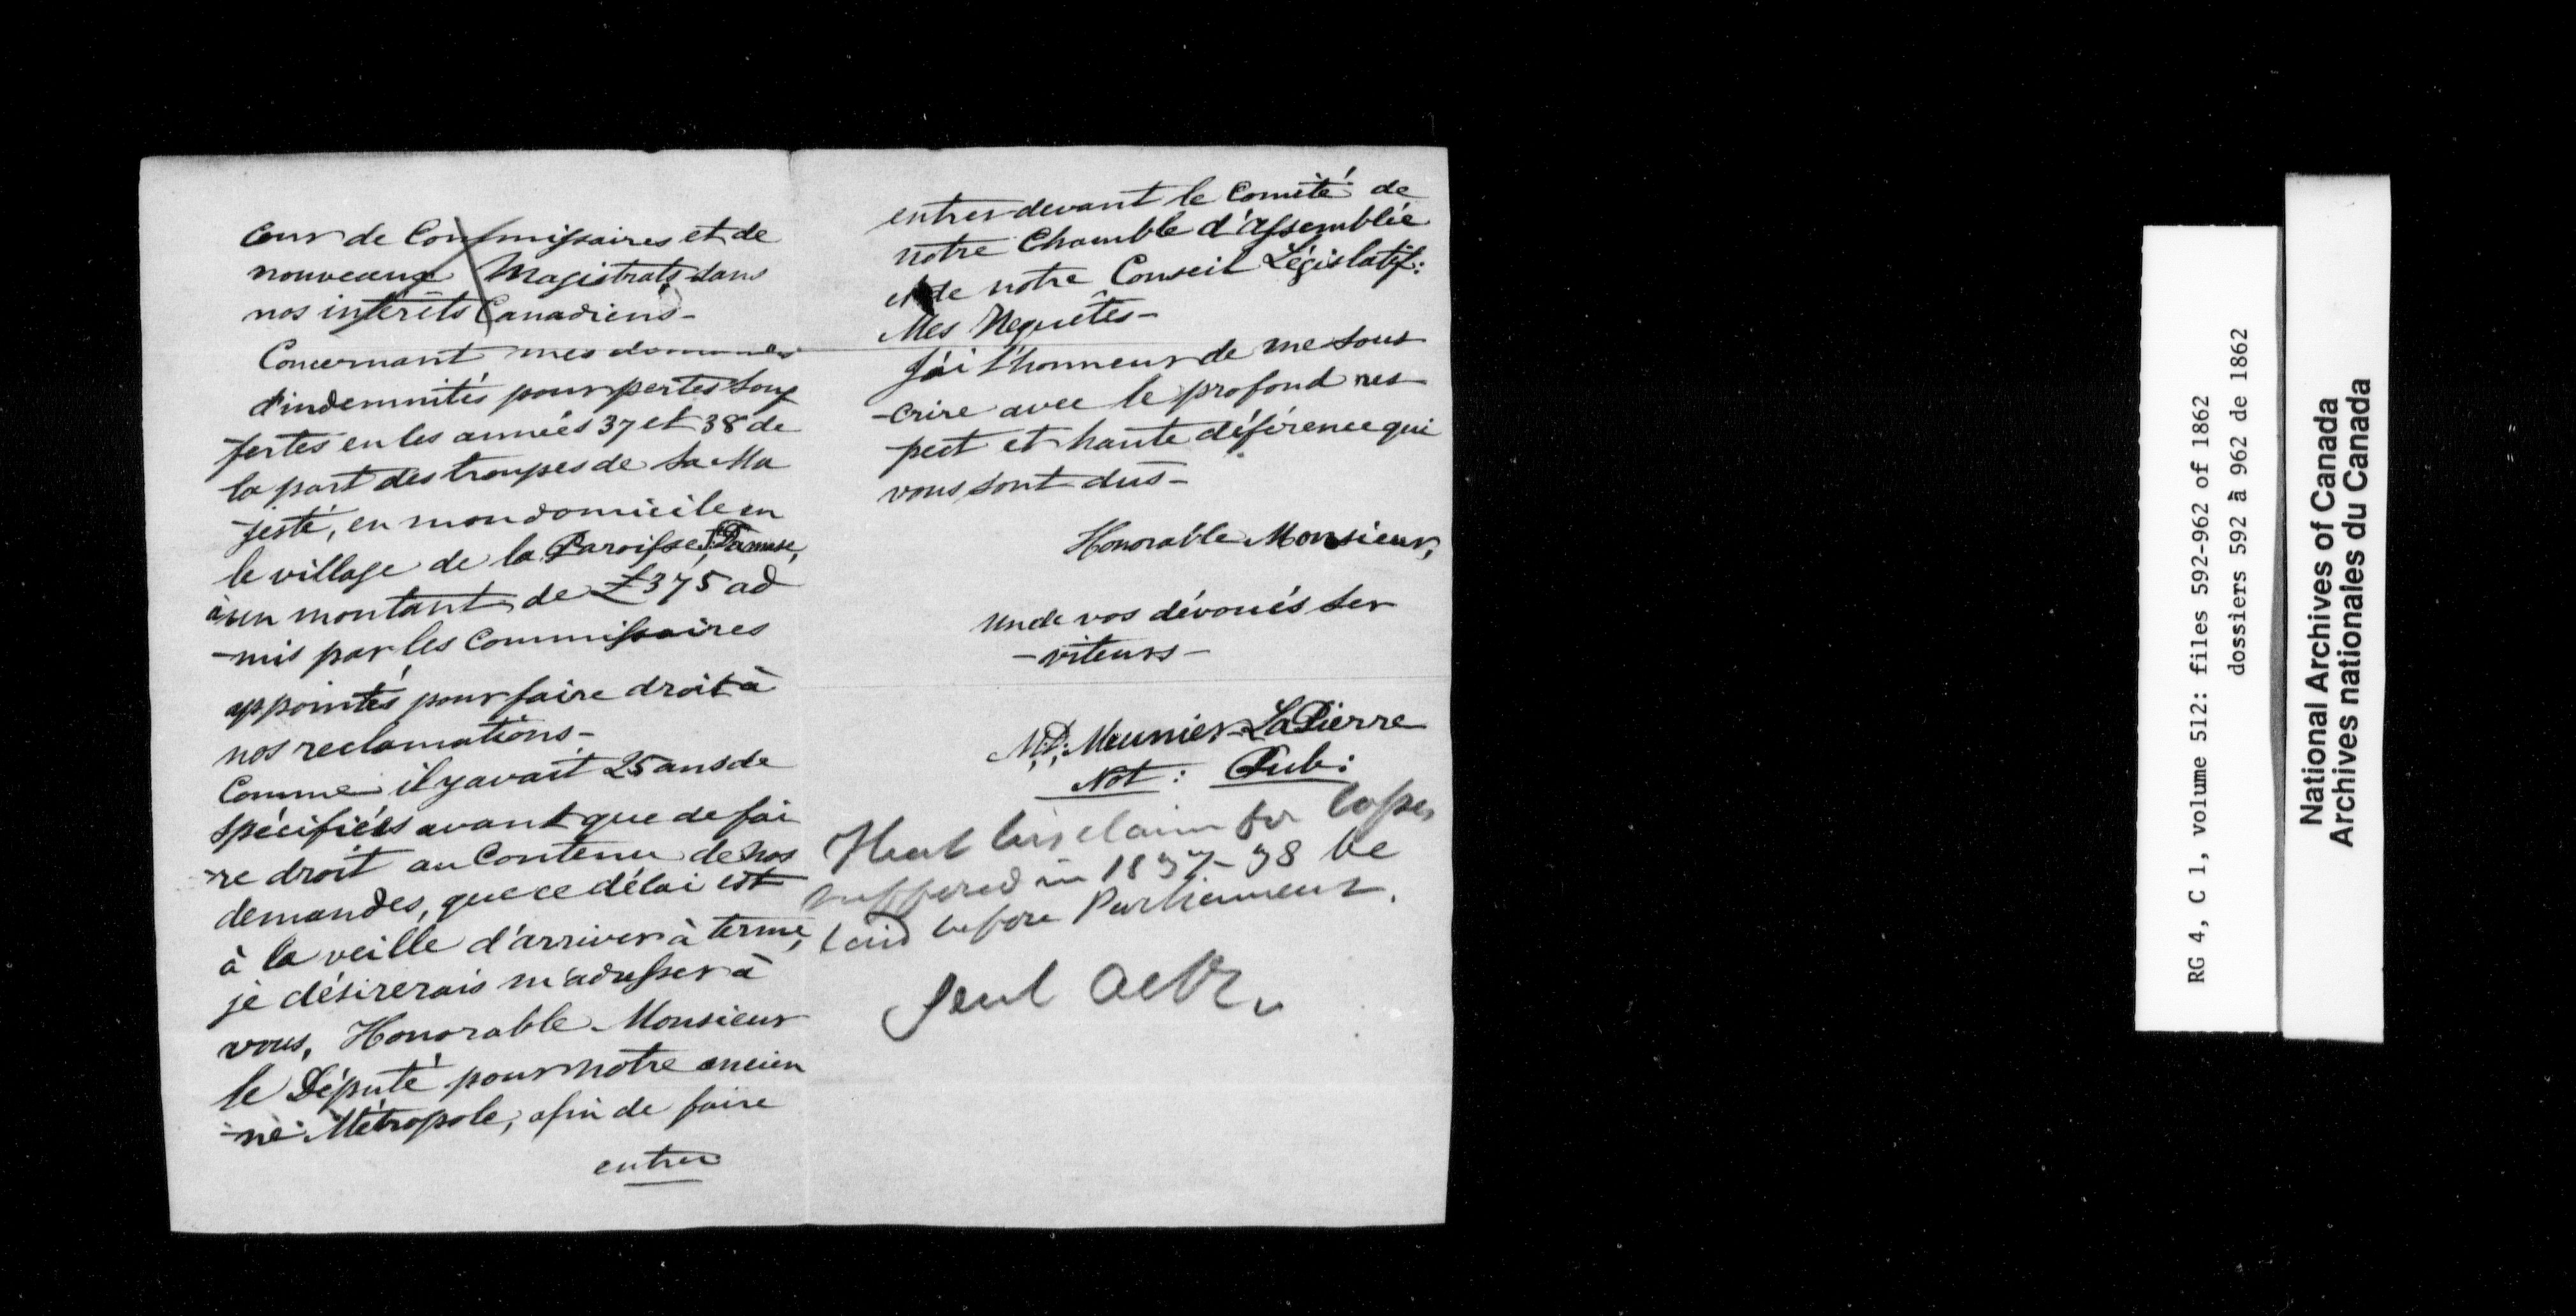 Cour de Commissaires et de
nouveaux Magistrats dans
nos intérêts Canadiens-
Concernant mes demandes
d'indemnités pour pertes souf
-fertes en les années 37 et 38 de
la part des troupes de Sa Ma
-jesté, en mon domicile en
le village de la Paroisse St. Damase,
à un montant de £375 ad
-mis par les Commissaires
appointés pour faire droit à
nos reclamations-
Comme il y avait 25 ans de
spécifiés avant que de fai
-re droit au Contenu de nos
demandes, que ce délai est
à la veille d'arriver à terme,
je désirerais m'adresser à
vous, Honorable Monsieur
le Député pour notre ancien
-ne Métropole, afin de faire
entrer
entrer devant le Comité de
notre Chamble d'Assemblée
et de notre Conseil Législatif:
Mes Requêtes-
J'ai l'honneur de me sous
-crire avec le profond res
pect et haute déférence qui
vous sont dus-
Honorable Monsieur,
un de vos dévoués ser
-viteurs-
M,D, Meunier-LaPierre
Not: Pub:
That his claim for losses
suffered in 1837-38 be
laid before Parliament.
National Archives of Canada
Archives nationales du Canada
RG 4, C 1, volume 512: files 592-962 of 1862
dossiers 592 à 962 de 1862